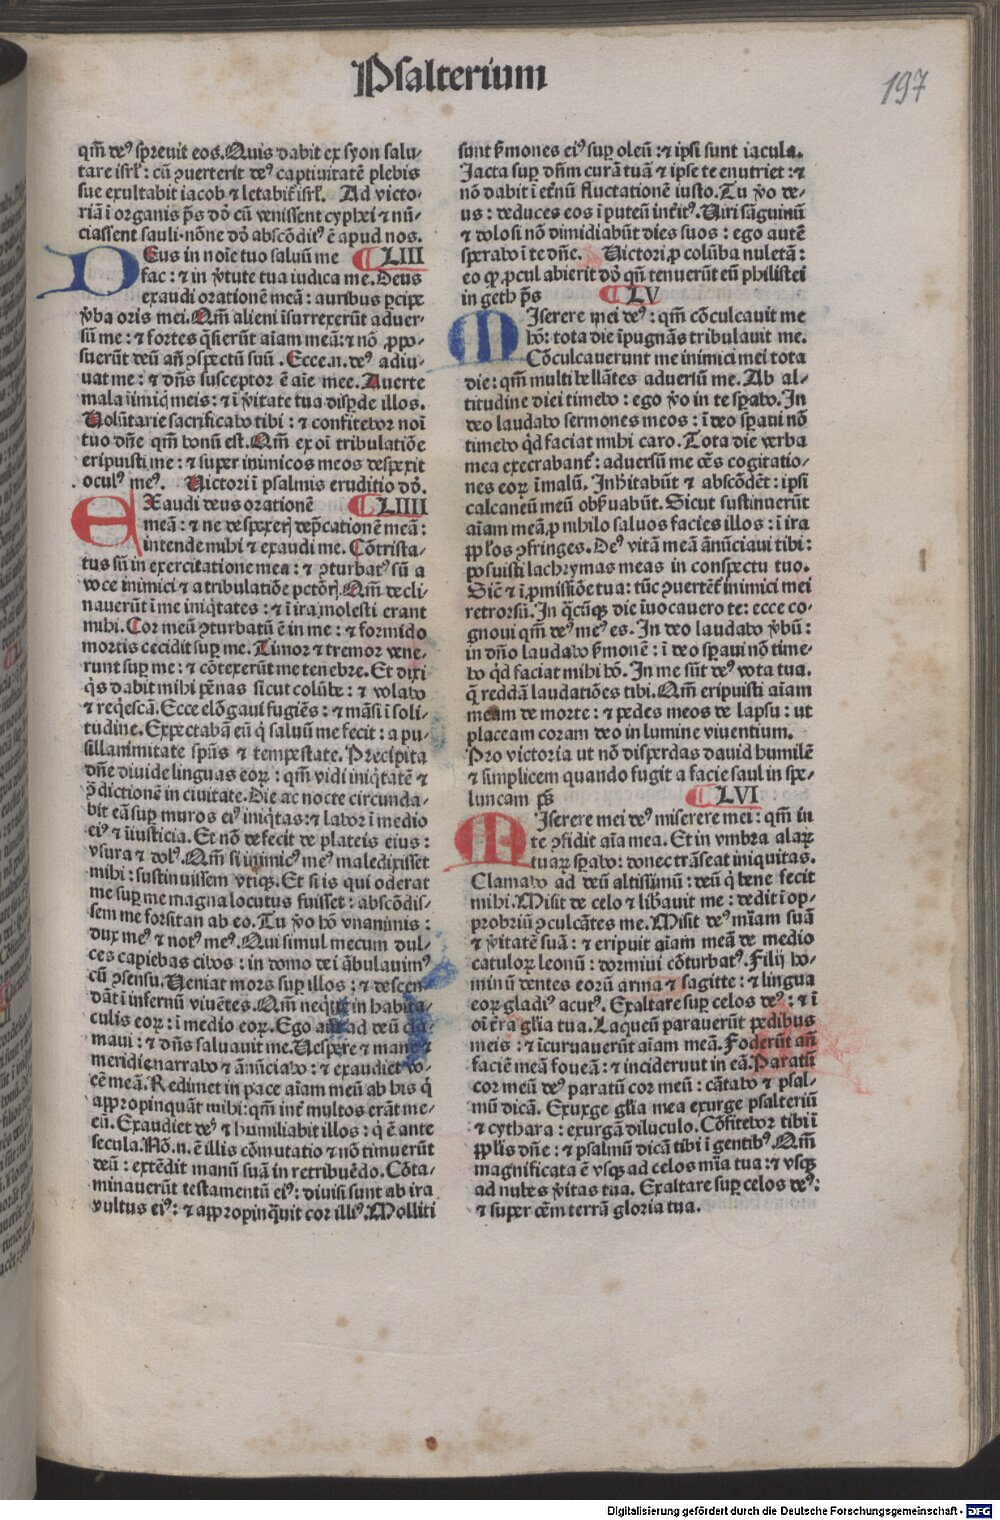 Psalterium
197
qm̄ de⁹ spreuit eos. Quis dabit ex syon salu-
tare isrl̕: cū ꝯuerterit de⁹ captiuitatē plebis
sue exultabit iacob ⁊ letabit̕ isrl̕. Ad victo-
riā ī organis p̄s dō cū venissent cyphei ⁊ nū-
ciassent sauli·nōne dō abscōdit⁹ ē apud nos.
DEus in noīe tuo saluū me LIII
fac: ⁊ in v̕tute tua iudica me. Deus
exaudi orationē meā: auribus ꝑcipe
v̕ba oris mei. Qm̄ alieni īsurrexerūt aduer-
sū me: ⁊ fortes q̄sierūt aīam meā: ⁊ nō ꝓpo-
suerūt deū añ ꝯspectū suū. Ecce.n.de⁹ adiu-
uat me: ⁊ dn̄s susceptor ē aīe mee. Auerte
mala īimiq̄ meis: ⁊ ī v̕itate tua disꝑde illos.
Volūtarie sacrificabo tibi: ⁊ confitebor noī
tuo dn̄e qm̄ bonū est. Qm̄ ex oī tribulatiōe
eripuisti me: ⁊ super inimicos meos despexit
ocul⁹ me⁹. Victori ī psalmis eruditio dō.
EXaudi deus orationē LIIII
meā: ⁊ ne despexer̕ dep̄cationē meā:
intende mihi ⁊ exaudi me. Cōtrista-
tus sū in exercitatione mea: ⁊ ꝯturbat⁹ sū a
voce inimici ⁊ a tribulatiōe pctōr̕. Qm̄ decli-
nauerūt ī me iniq̄tates: ⁊ ī ira molesti erant
mihi. Cor meū ꝯturbatū ē in me: ⁊ formido
mortis cecidit suꝑ me. Timor ⁊ tremor vene-
runt suꝑ me: ⁊ cōtexerūt me tenebre. Et dixi
q̄s dabit mihi pēnas sicut colūbe: ⁊ volabo
⁊ req̄escā. Ecce elōgaui fugiēs: ⁊ māsi ī soli-
tudine. Expectabā eū q̄ saluū me fecit: a pu-
sillanimitate spūs ⁊ tempestate. Precipita
dn̄e diuide linguas eoꝝ: qm̄ vidi iniq̄tatē ⁊
ꝯ̄dictionē in ciuitate. Die ac nocte circunda-
bit eā suꝑ muros ei⁹ iniq̄tas: ⁊ labor ī medio
ei⁹ ⁊ iniusticia. Et nō defecit de plateis eius:
vsura ⁊ dol⁹. Qm̄ si inimic⁹ me⁹ maledixisset
mihi: sustinuissem vtiqꝫ. Et si is qui oderat
me suꝑ me magna locutus fuisset: abscōdis-
sem me forsitan ab eo. Tu v̕o hō vnanimis:
dux me⁹ ⁊ not⁹ me⁹. Qui simul mecum dul-
ces capiebas cibos: in domo dei ābulauim⁹
cū ꝯsensu. Veniat mors suꝑ illos: ⁊ descen-
dāt ī infernū viuētes. Qm̄ neq̄tie in habita-
culis eoꝝ: ī medio eoꝝ. Ego aūt ad deū cla-
maui: ⁊ dn̄s saluauit me. Vespere ⁊ mane ⁊
meridie narrabo ⁊ ānūciabo: ⁊ exaudiet vo-
cē meā. Redimet in pace aīam meā ab his q̄
aꝓpropinquāt mihi: qm̄ int̕ multos erāt me-
cū. Exaudiet de⁹ ⁊ humiliabit illos: q̄ ē ante
secula. Nō.n.ē illis cōmutatio ⁊ nō timuerūt
deū: extēdit manū suā in retribuēdo. Cōta-
minauerūt testamentū ei⁹: diuisi sunt ab ira
vultus ei⁹: ⁊ aꝓpropinq̄uit cor illi⁹. Molliti
sunt s̕mones ei⁹ suꝑ oleū: ⁊ ipsi sunt iacula.
Jacta suꝑ dn̄m curā tuā ⁊ ipse te enutriet: ⁊
nō dabit ī et̕nū fluctationē iusto. Tu v̕o de-
us: deduces eos ī puteū int̕it⁹. Viri sāguinū
⁊ dolosi nō dimidiabūt dies suos: ego autē
sperabo ī te dn̄e. Victori ꝓ colūba nuletā:
eo qꝙ ꝓcul abierit dō qn̄ tenuerūt eū philistei
in geth p̄s LV
MIserere mei de⁹: qm̄ cōculcauit me
hō: tota die īpugnās tribulauit me.
Cōculcauerunt me inimici mei tota
die: qm̄ multi bellātes aduersū me. Ab al-
titudine diei timebo: ego v̕o in te sꝑabo. In
deo laudabo sermones meos: ī deo sꝑaui nō
timebo qd̕ faciat mihi caro. Tota die verba
mea execrabant̕: aduersū me oēs cogitatio-
nes eoꝝ ī malū. Inhitabūt ⁊ abscōdēt: ipsi
calcaneū meū obs̕uabūt. Sicut sustinuerūt
aīam meā, ꝓ nihilo saluos facies illos: ī ira
pp̄los ꝯfringes. De⁹ vitā meā ānūciaui tibi:
posuisti lachrymas meas in conspectu tuo.
Sic̄ ⁊ ī ꝓmissiōe tua: tūc ꝯuertent̕ inimici mei
retrorsū. In q̄cūqꝫ die īuocauero te: ecce co-
gnoui qm̄ de⁹ me⁹ es. In deo laudabo v̕bū:
in dn̄o laudabo s̕monē: ī deo sꝑaui nō time-
bo qd̕ faciat mihi hō. In me sūt de⁹ vota tua.
q̄ reddā laudatiōes tibi. Qm̄ eripuisti aīam
meam de morte: ⁊ pedes meos de lapsu: ut
placeam coram deo in lumine viuentium.
Pro victoria ut nō disperdas dauid humilē
⁊ simplicem quando fugit a facie saul in spe-
luncam p̄s LVI
MIserere mei de⁹ miserere mei: qm̄ in
te ꝯfidit aīa mea. Et in vmbra alaꝝ
tuaꝝ sꝑabo: donec trāseat iniquitas.
Clamabo ad deū altissimū: deū q̄ bene fecit
mihi. Misit de celo ⁊ lib̕auit me: dedit ī op-
probriū ꝯculcātes me. Misit de⁹ mīam suā
⁊ v̕itatē suā: ⁊ eripuit aīam meā de medio
catuloꝝ leonū: dormiui cōturbat⁹. Filij ho-
minū dentes eorū arma ⁊ sagitte: ⁊ lingua
eoꝝ gladi⁹ acut⁹. Exaltare suꝑ celos de⁹: ⁊ ī
oī t̕ra gl̕ia tua. Laqueū parauerūt pedibus
meis: ⁊ īcuruauerūt aīam meā. Foderūt añ
faciē meā foueā: ⁊ inciderunt in eā. Paratū
cor meū de⁹ paratū cor meū: cātabo ⁊ psal-
mū dicā. Exurge gl̕ia mea exurge psalteriū
⁊ cythara: exurgā diluculo. Cōfitebor tibi ī
pp̄lis dn̄e: ⁊ psalmū dicā tibi ī gentib⁹. Qm̄
magnificata ē vsqꝫ ad celos mīa tua: ⁊ vsqꝫ
ad nubes v̕itas tua. Exaltare suꝑ celos de⁹:
⁊ super oēm terrā gloria tua.
Digitalisierung gefördert durch die Deutsche Forschungsgemeinschaft - DFG